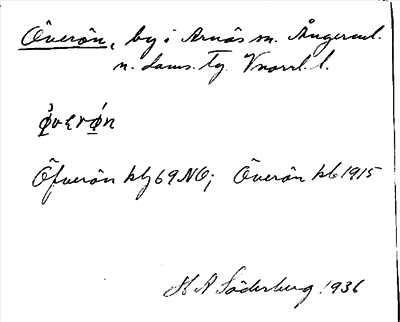 Överön, by i Arnäs sn. Ångerml.
n. doms. tg. Vnorrl. l.
Öfverön kbg 69 NO; Överön kb 1915
H A Söderberg 1936